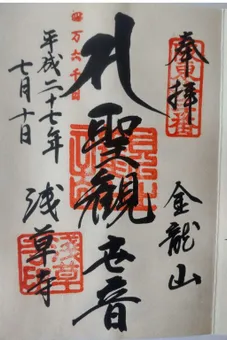 奉拝
金龍山
聖観世音
浅草寺
四万六千日
平成二十七年
七月十日